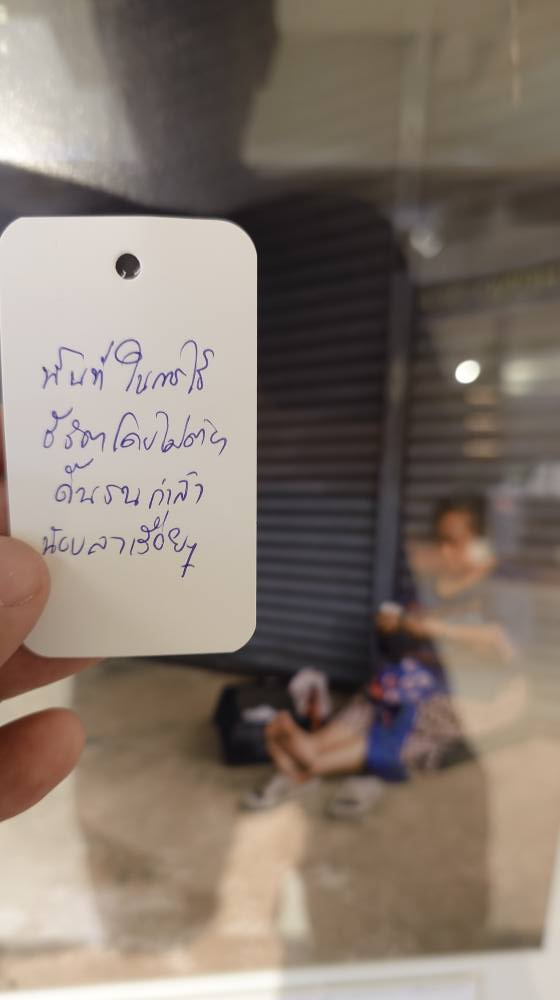 พื้นที่ ในการใช้
ชีวิตโดยไม่ต้อง
ดิ้นรน กำลัง
น้อยลงเรื่อยๆ